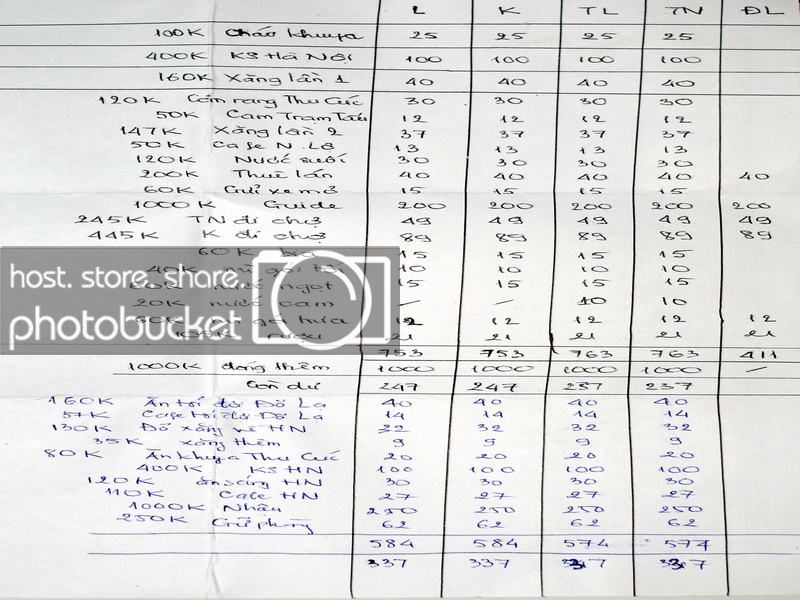 L K TL TN ĐL
100K Cháo khuya 25 25 25 25
400K KS Hà Nội 100 100 100 100
160K Xăng lần 1 40 40 40 40
120K Cơm rang Thu Cúc 30 30 30 30
50K Cam Trạm Tấu 12 12 12 12
147K Xăng lần 2 37 37 37 37
50K Cafe N. Lộ 13 13 13 13
120K Nước suối 30 30 30 30
200K Thuê lán 40 40 40 40 40
60K Gửi xe mở 15 15 15 15
1000K Guide 200 200 200 200 200
245K TN đi chợ 49 49 49 49 49
445K K đi chợ 89 89 89 89 89
60K bia 15 15 15 15
40K mì gói tối 10 10 10 10
60K nước ngọt 15 15 15 15
host. store. share.
20K nước cam - - 10 10
photobucket
60K mì gói trưa 12 12 12 12 12
105K rượu 21 21 21 21 21
753 753 763 763 411
1000K đóng thêm 1000 1000 1000 1000 -
Còn dư 247 247 237 237
160K Ăn tối đò Đồ La 40 40 40 40
57K Cafe tối đò Đồ La 14 14 14 14
130K Đổ xăng về HN 22 32 32 32
35K xăng thêm 9 9 9 9
80K Ăn khuya Thu Cúc 20 20 20 20
400K KS HN 100 100 100 100
120K ăn sáng HN 30 30 30 30
110K Cafe HN 27 27 27 27
1000K Nhậu 250 250 250 250
250K Gửi phòng 62 62 62 62
584 584 574 577
337 337 337 337